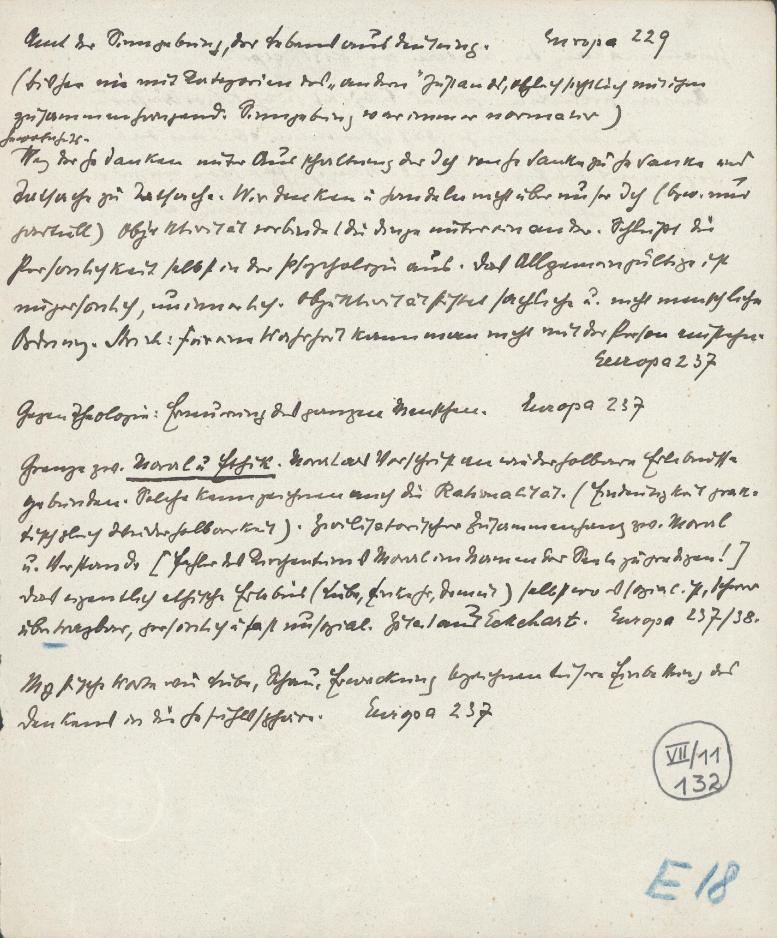 Amt der Sinngebung, der Lebensausdeutung. Europa 229
(bisher nie mit Kategorien des „andern" Zustands, obzwar sichtlich mit ihm
zusammenhängend. Sinngebung war immer normativ)
Gewohnheits-
Weg der Gedanken unter Ausschaltung der Ich von Gedanke zu Gedanke und
Tatsache zu Tatsache. Wir denken u handeln nicht über unser Ich (bzw. nur
partiell) Objektivität verbindet die Dinge untereinander. Schließt die
Persönlichkeit selbst in der Psychologie aus. Das Allgemeingültige ist
unpersönlich, uninnerlich. Objektivität stiftet sachliche u. nicht menschliche
Ordnung. Strich: für eine Wahrheit kann man nicht mit der Person einstehn.
Europa 237
Gegen Theologie: Erneuerung des ganzen Menschen. Europa 237
Grenze zw. Moral u Ethik. Moral als Vorschrift an wiederholbare Erlebnisse
gebunden. Solche kennzeichnen auch die Rationalität. (Eindeutigkeit
Wiederholbarkeit). Zivilisatorischer Zusammenhang zw. Moral
u. Verstande [Fehler des Kirchentums Moral im Namen der Seele zu predigen!]
Das eigentlich ethische Erlebnis (Liebe, Einkehr, Demut) selbst wo es sozial ist, schwer
übertragbar, persönlich u fast unsozial. Zitat aus Eckehart. Europa 237/38.
Mystische Worte wie Liebe, Schau, Erweckung bezeichnen tiefere Einbettung des
Denkens in die Gefühlssphäre. Europa 237
VII/11
132
E 18